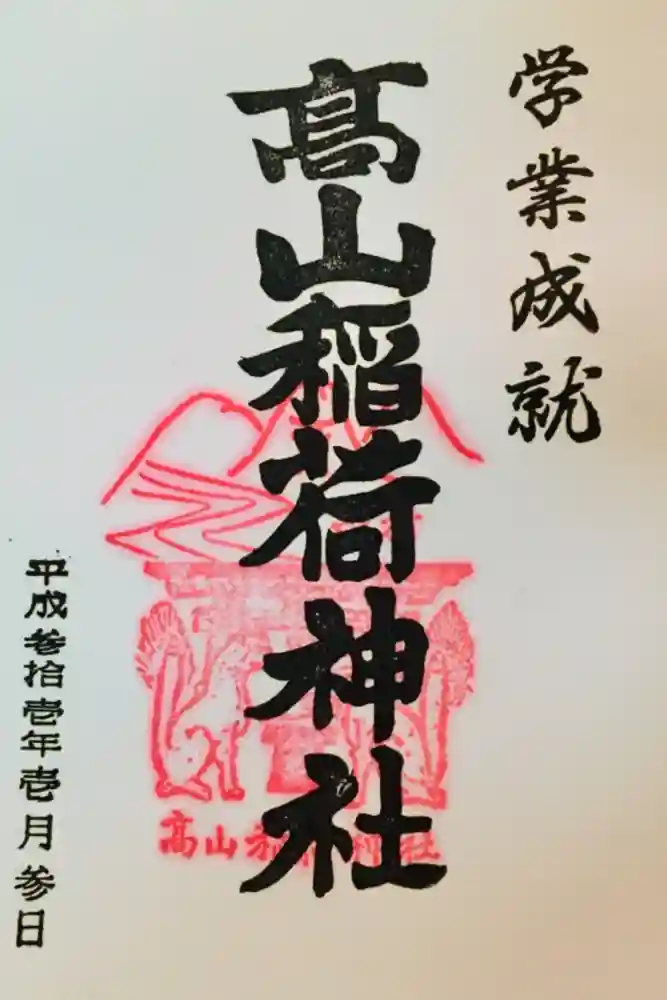 学業成就
髙山稲荷神社
平成参拾壱年壱月参日
髙山稲荷神社